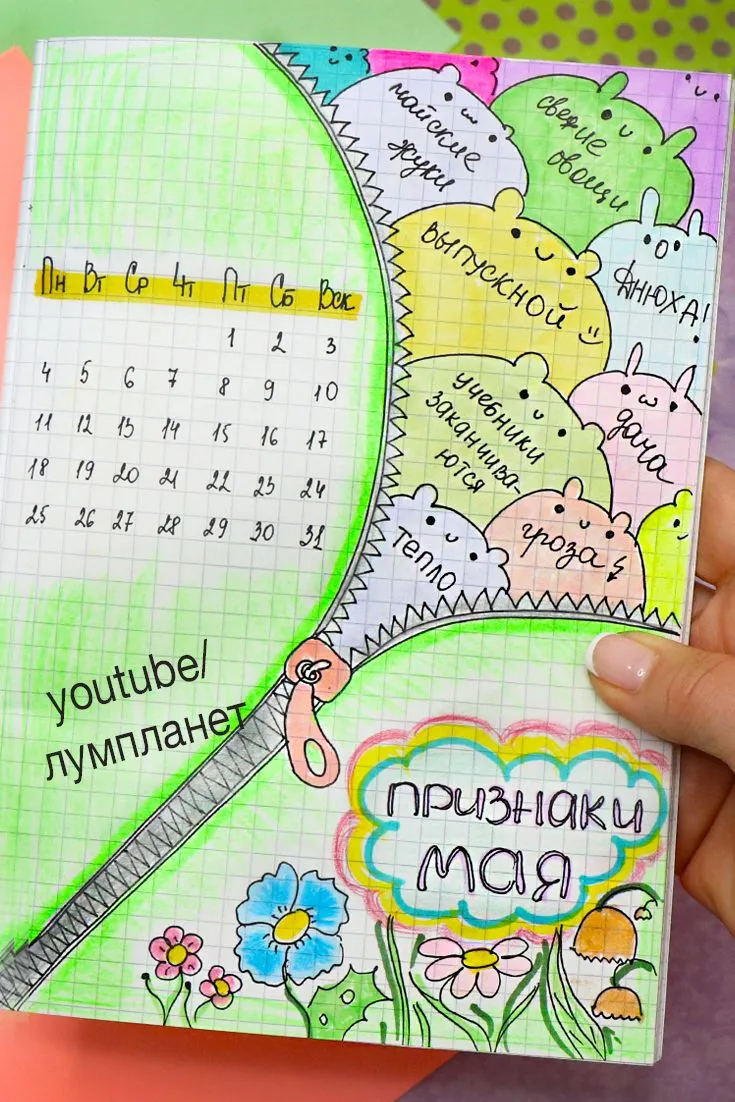 майские
жуки
свежие
овощи
ВЫПУСКНОЙ
АНЮХА!
учебники
заканчива-
ются
дача
тепло
гроза
Пн Вт Ср Чт Пт Сб Вск
1 2 3
4 5 6 7 8 9 10
11 12 13 14 15 16 17
18 19 20 21 22 23 24
25 26 27 28 29 30 31
youtube/
лумпланет
ПРИЗНАКИ
МАЯ